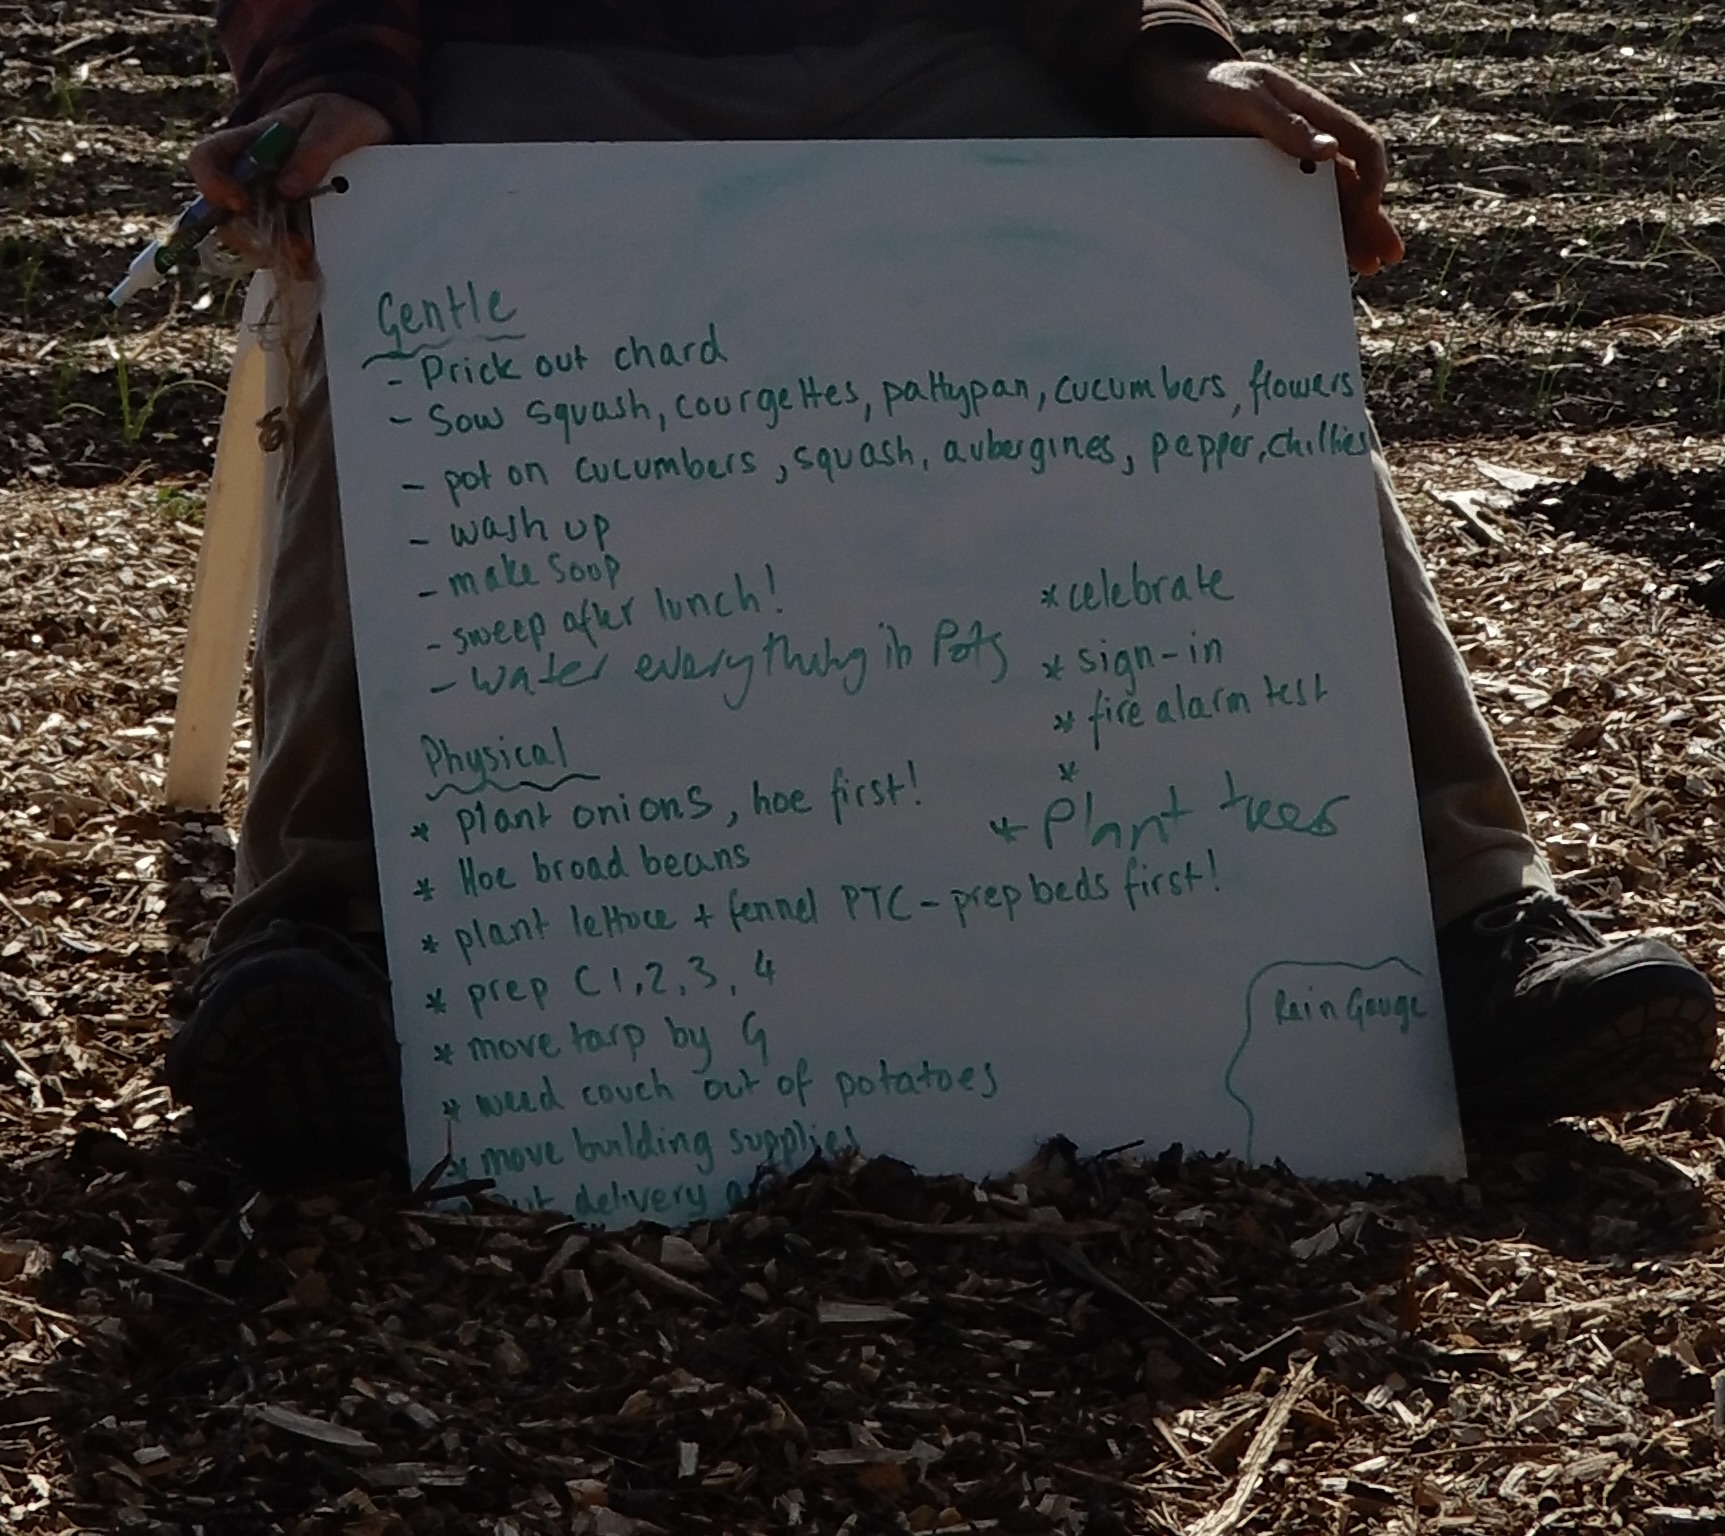 Gentle
- Prick out chard
- Sow squash, courgettes, pattypan, cucumbers, flowers
- pot on cucumbers, squash, aubergines, pepper, chillies
- wash up
- make soup
- sweep after lunch!
- water everything in Pots
* celebrate
* sign-in
* fire alarm test
*
* Plant trees
Physical
* plant onions, hoe first!
* Hoe broad beans
* plant lettuce + fennel PTC - prep beds first!
* prep C1,2,3,4
* move tarp by G
* weed couch out of potatoes
* move building supplies
delivery
Rain Gauge